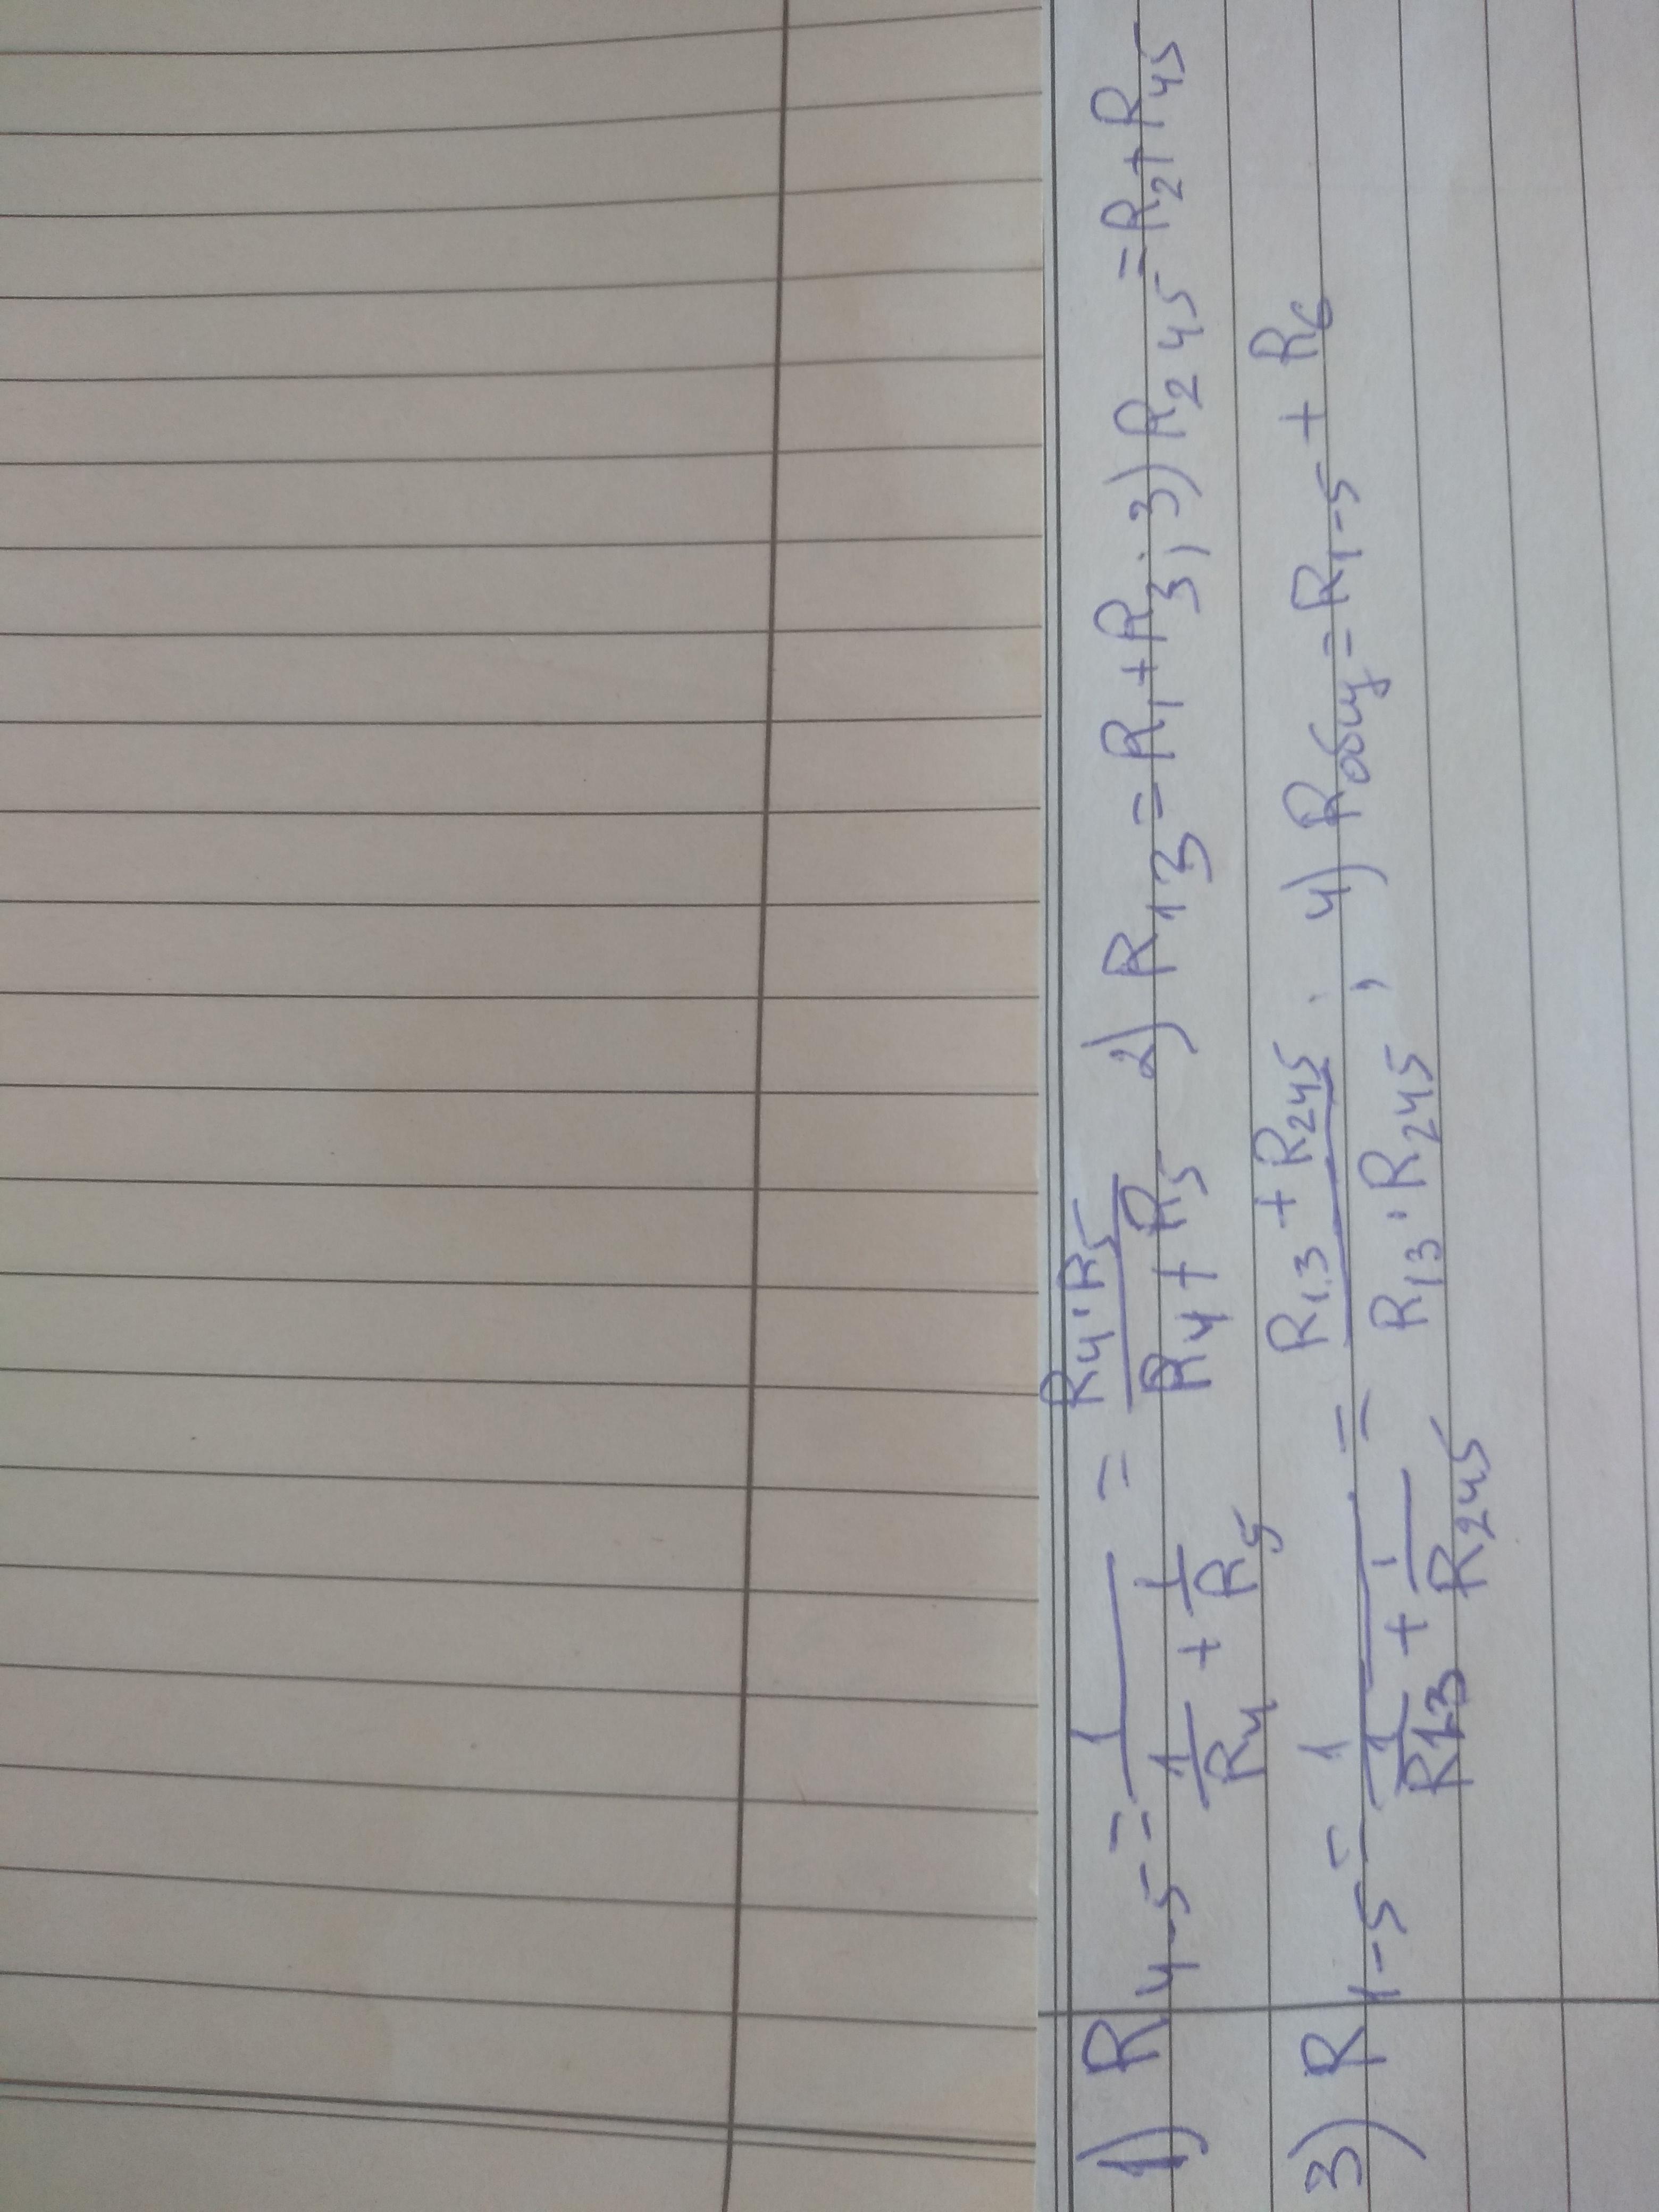 1) R₄₋₅ = 1/(1/R₄ + 1/R₅) = R₄·R₅/(R₄ + R₅) 2) R₁₃ = R₁ + R₃; 3) R₂₄₅ = R₂ + R₄₅
3) R₁₋₅ = 1/(1/R₁₃ + 1/R₂₄₅) = (R₁₃ + R₂₄₅)/(R₁₃·R₂₄₅); 4) Rобщ = R₁₋₅ + R₆